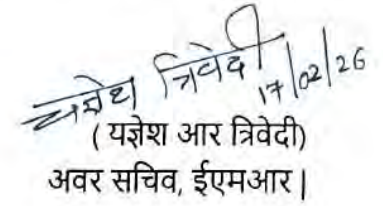 यज्ञेश त्रिवेदी
17/02/26
( यज्ञेश आर त्रिवेदी)
अवर सचिव, ईएमआर |